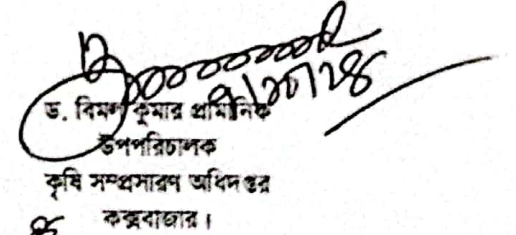 ড. বিমল কুমার প্রামানিক
উপপরিচালক
কৃষি সম্প্রসারণ অধিদপ্তর
কক্সবাজার।